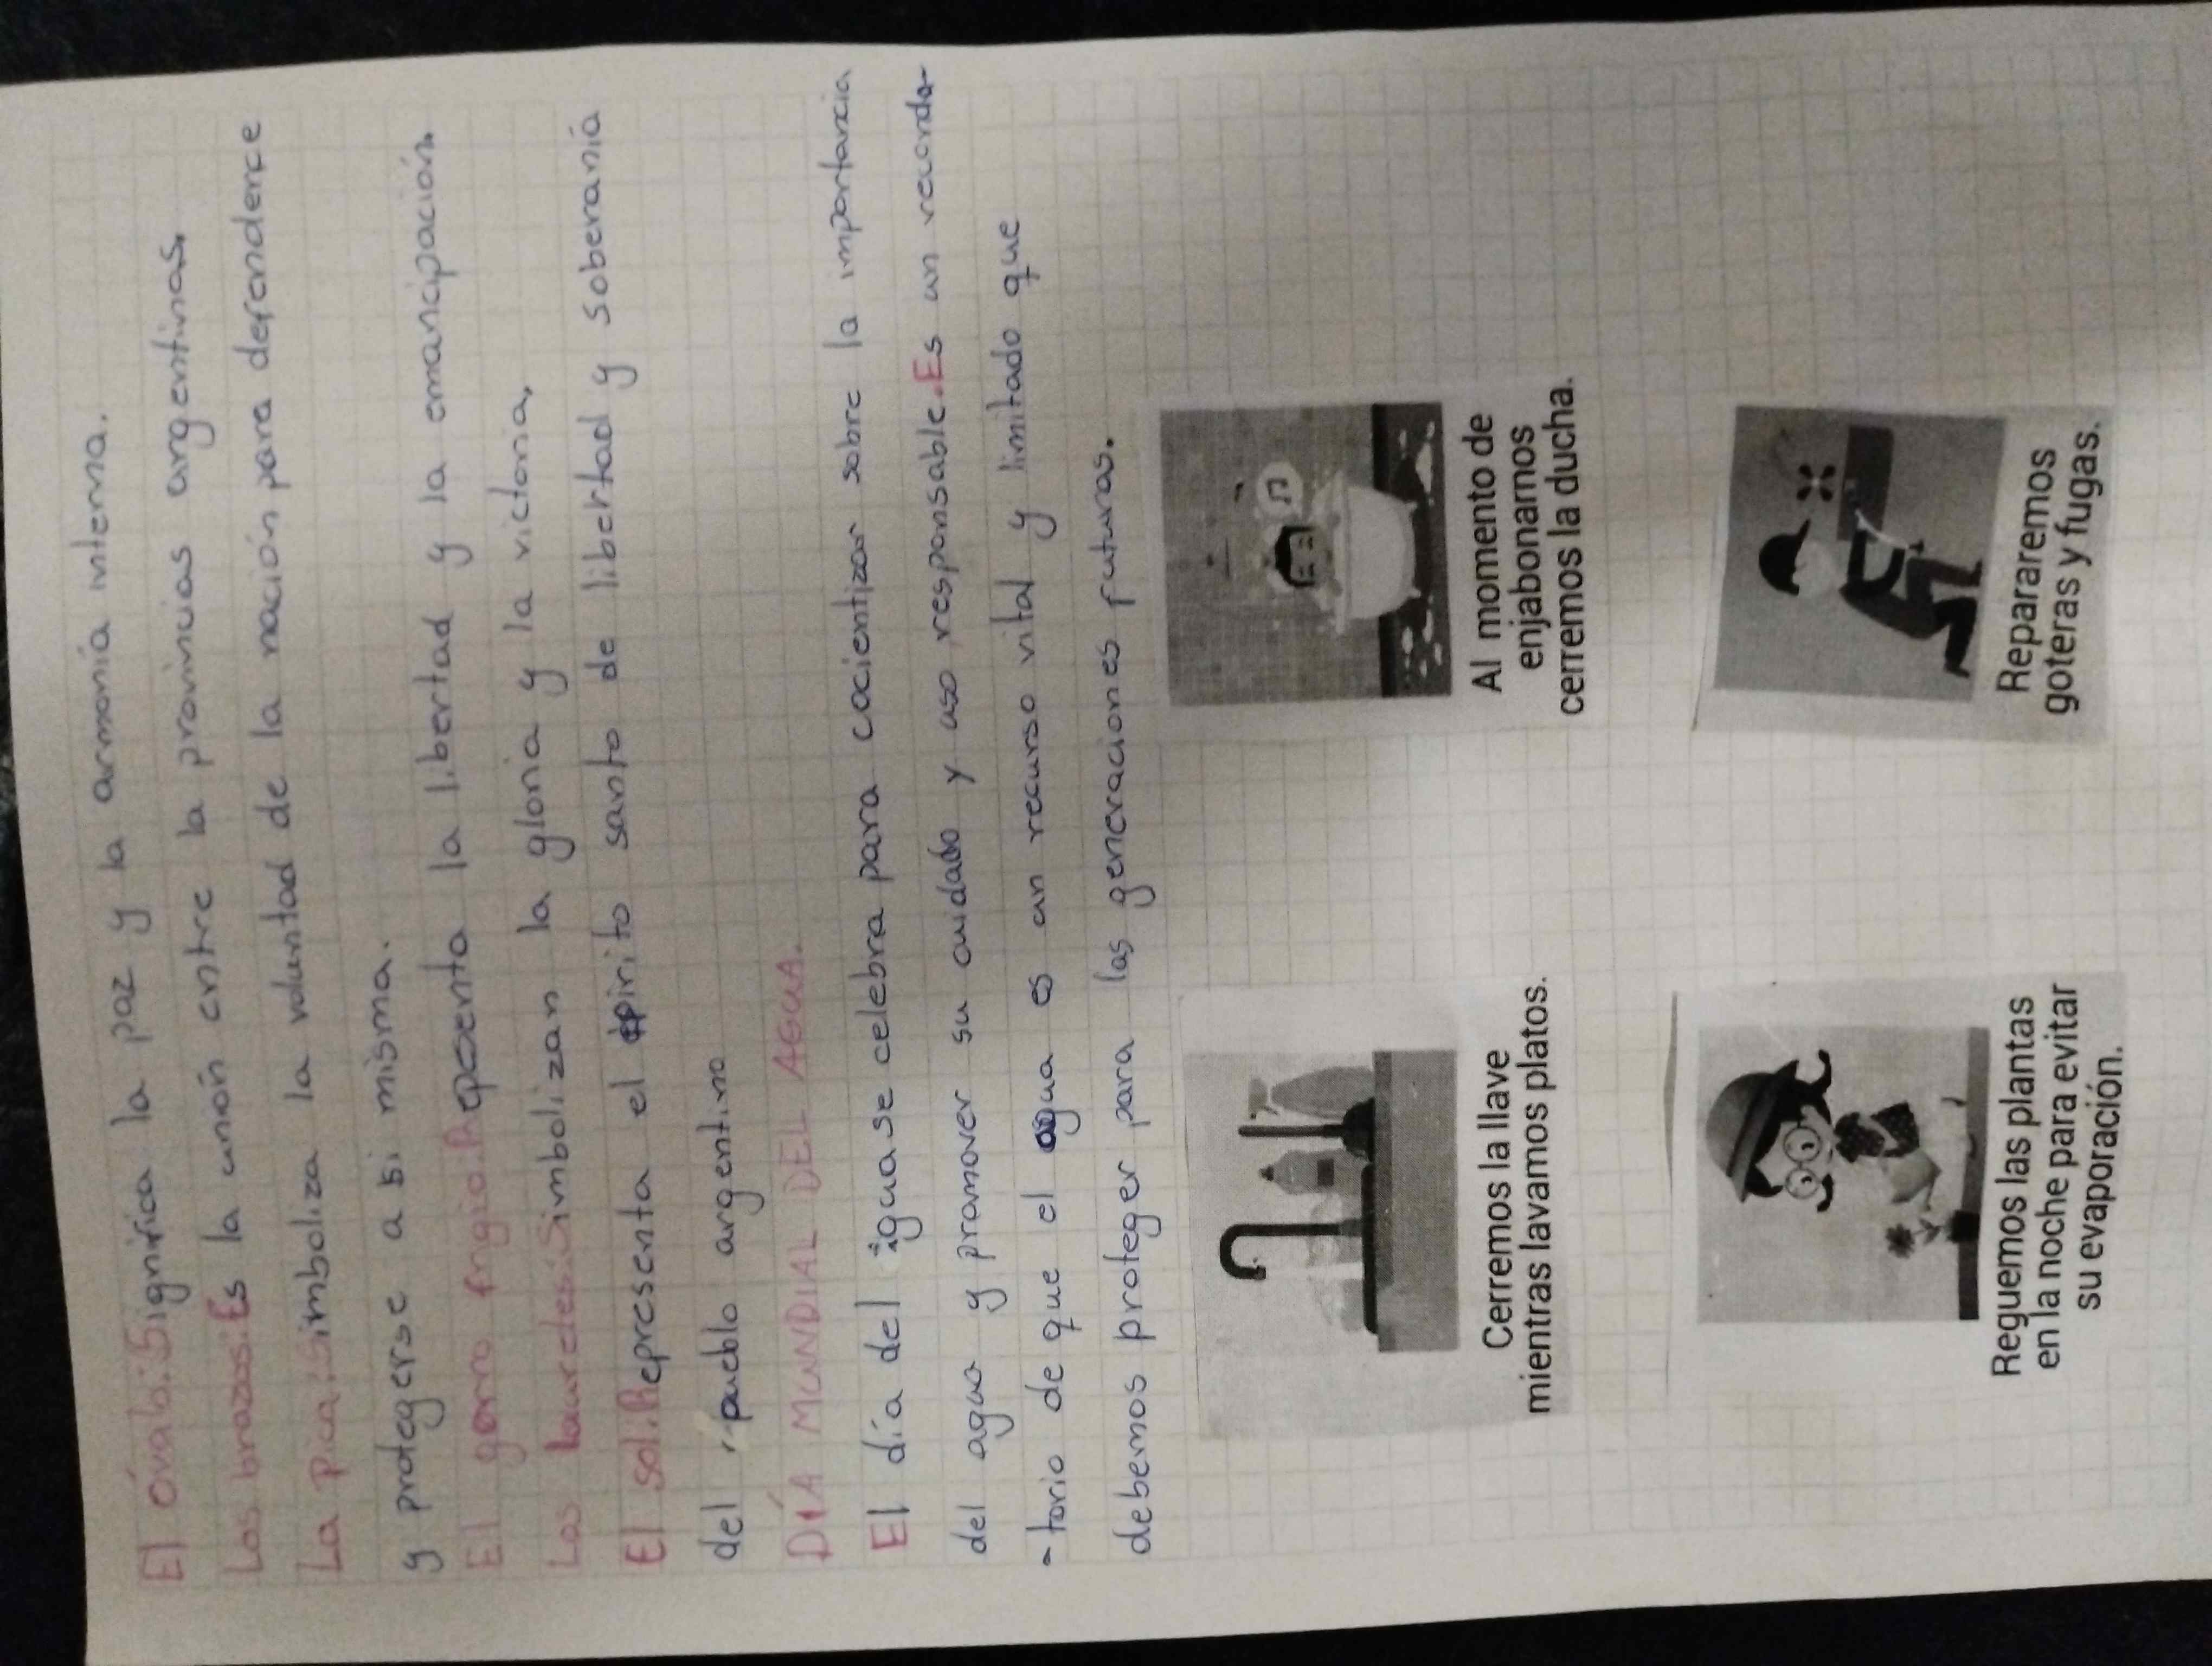 El óvalo: Significa la paz y la armonía interna.
Los brazos: Es la unión entre la provincias argentinas.
La pica: Simboliza la voluntad de la nación para defenderce
y protegerse a si misma.
El gorro frigio: Reposenta la libertad y la emancipación.
Los laureles: Simbolizan la gloria y la victoria.
El sol: Representa el spirito santo de libertad y soberanía
del pueblo argentino
DÍA MUNDIAL DEL AGUA.
El día del agua se celebra para cocientizar sobre la importancia
del agua y promover su cuidado y uso responsable. Es un recorda-
-torio de que el agua es un recurso vital y limitado que
debemos proteger para las generaciones futuras.
Cerremos la llave
mientras lavamos platos.
Al momento de
enjabonarnos
cerremos la ducha.
Reguemos las plantas
en la noche para evitar
su evaporación.
Repararemos
goteras y fugas.